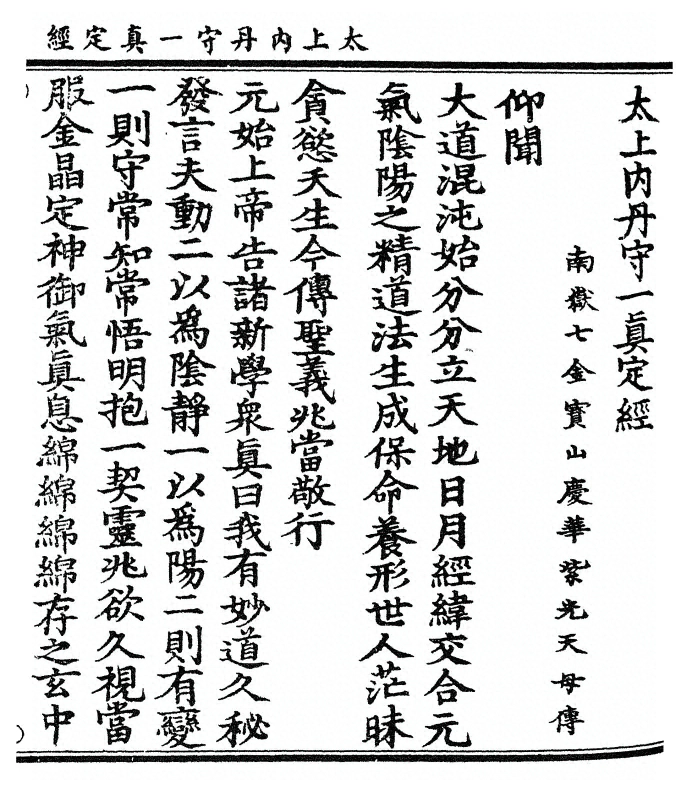 太上內丹守一真定經
太上内丹守一眞定經
南嶽七金寶山慶華紫光天母傳
仰聞
大道混沌始分分立天地日月經緯交合元
氣陰陽之精道法生成保命養形世人茫昧
貪慾夭生今傳聖義兆當敬行
元始上帝告諸新學衆眞曰我有妙道久秘
發言夫動二以爲陰靜一以爲陽二則有變
一則守常知常悟明抱一契靈兆欲久視當
服金晶定神御氣眞息綿綿綿綿存之玄中